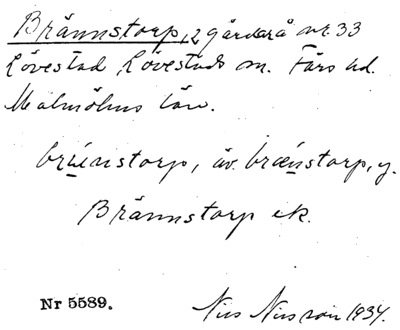 Brännstorp, 2 gårdar å nr. 33
Lövestad, Lövestads sn. Färs hd.
Malmöhus län.
brænstorp, y.
Brännstorp ek.
Nr 5589.
Nils Nilsson 1934.